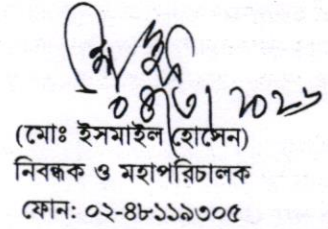 (মোঃ ইসমাইল হোসেন)
নিবন্ধক ও মহাপরিচালক
ফোন: ০২-৪৮১১৯৩০৫